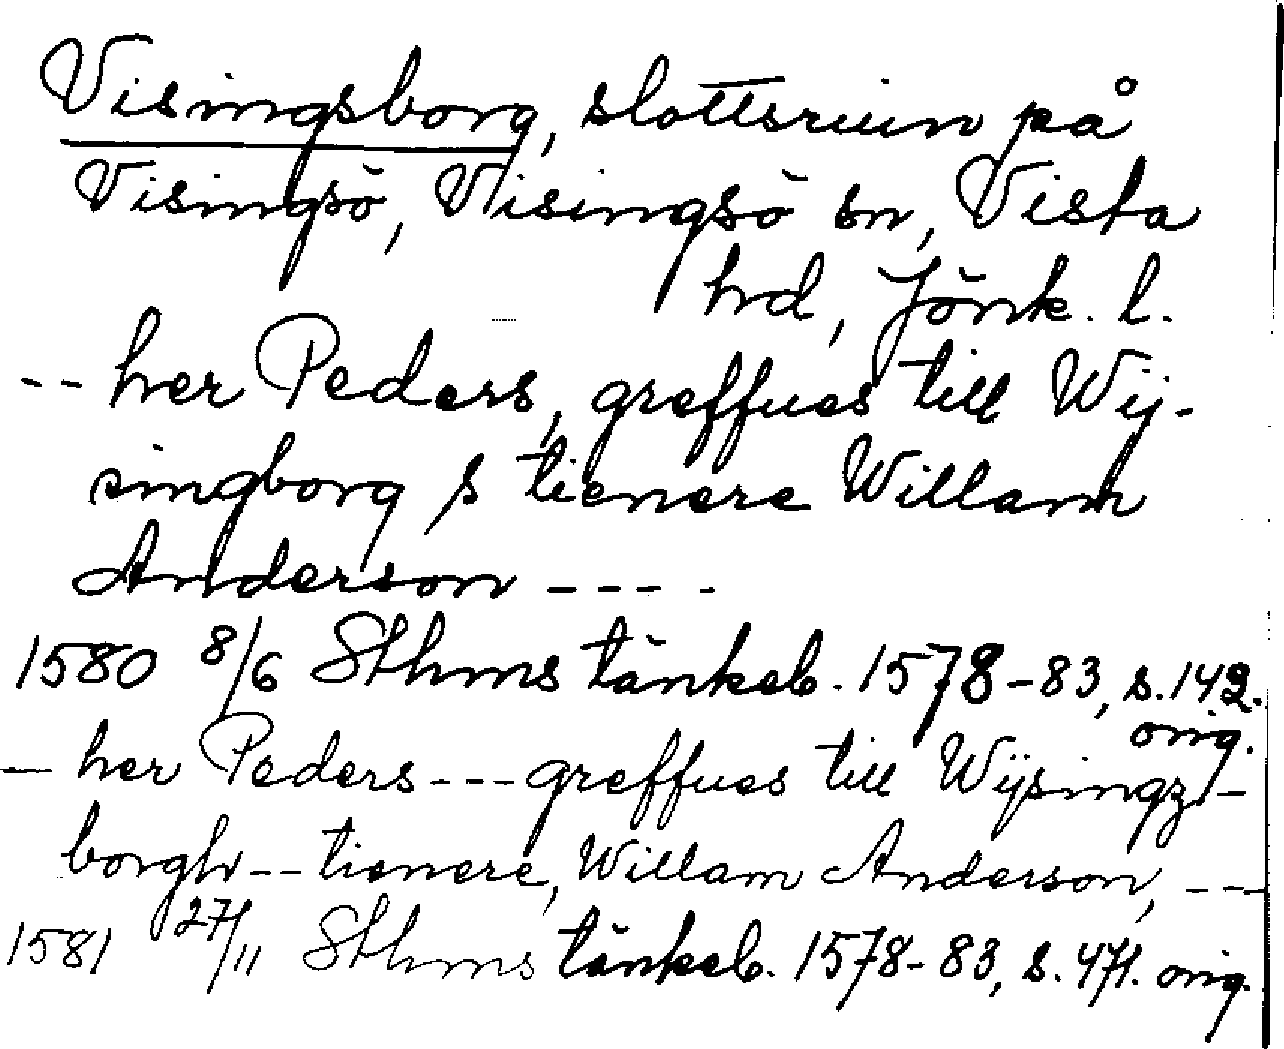 Visingsborg, slottsruin på
Visingsö, Visingsö sn, Vista
hd, Jönk. l.
-- her Peders, greffues till Wij-
singborg s tienere Willam
Anderson ----
1580 8/6 Sthms tänkeb. 1578-83, s. 142.
orig.
- her Peders --- greffues till Wijsingz-
borgh -- tienere, Willam Anderson, ---
1581 27/11 Sthms tänkeb. 1578-83, s. 471. orig.